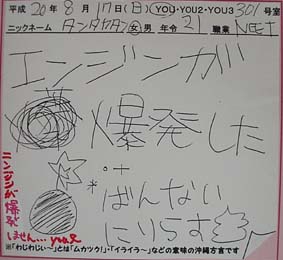 平成20年8月17日(日)(YOU・YOU2・YOU3 301号室
ニックネーム タンタカタン 女・男 年令21 職業NEET
エンジンが
爆発した
ばんない
にりらす
ニンジンが爆発しません… you兄
※「わじわじぃ〜」とは「ムカツク!」・「イライラ〜」などの意味の沖縄方言です